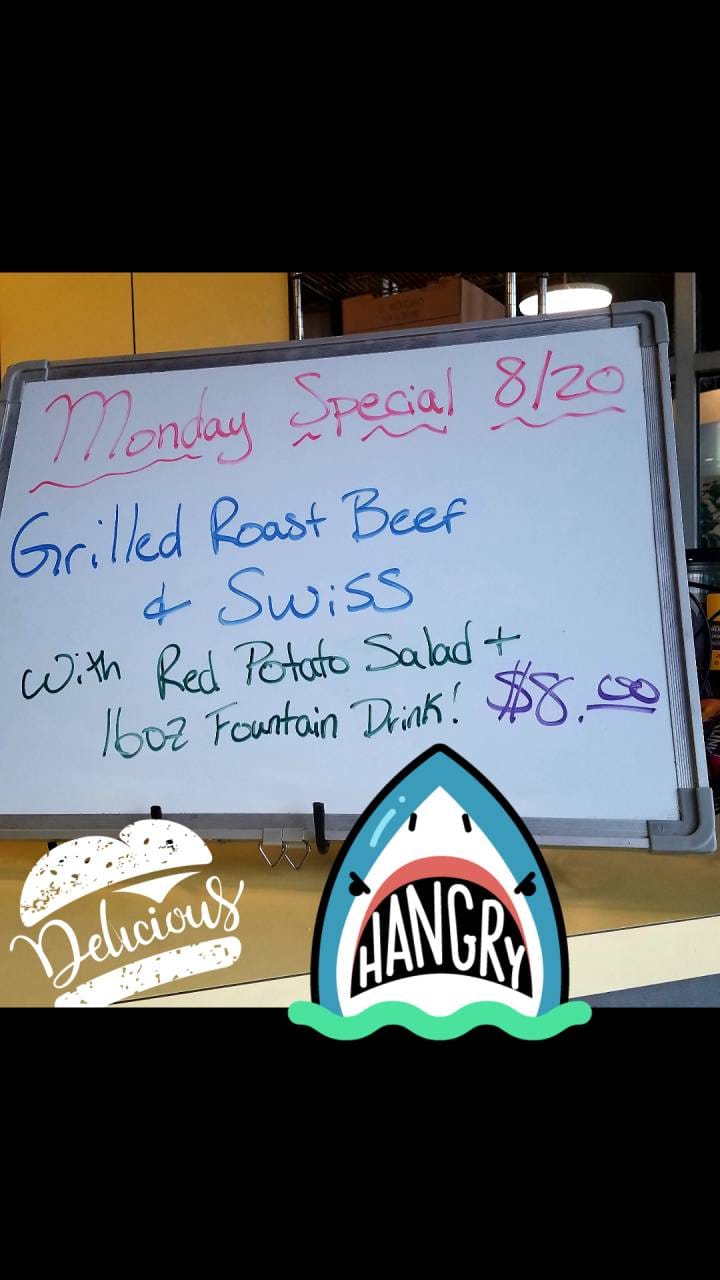 Monday Special 8/20
Grilled Roast Beef
& Swiss
with Red Potato Salad +
16oz Fountain Drink! $8.00
Delicious
HANGRY